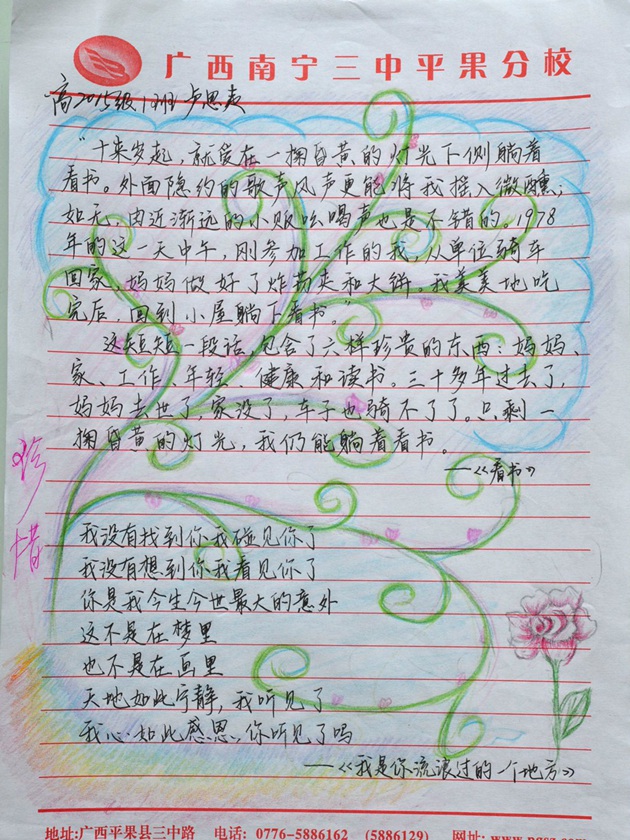 广西南宁三中平果分校
高2015级1班 卢思夷
"十来岁起，就爱在一掬昏黄的灯光下侧躺着
看书。外面隐约的歌声风声更能将我摇入微醺，
如无，由近渐远的小贩吆喝声也是不错的。1978
年的这一天中午，刚参加工作的我，从单位骑车
回家，妈妈做好了炸药夹和大饼，我美美地吃
完后，回到小屋躺下看书。"
这短短一段话，包含了六样珍贵的东西：妈妈、
家、工作、年轻、健康和读书。三十多年过去了，
妈妈去世了，家没了，车子也骑不了了。只剩一
掬昏黄的灯光，我仍能躺着看书。
——《看书》
珍惜
我没有找到你我碰见你了
我没有想到你我看见你了
你是我今生今世最大的意外
这不是在梦里
也不是在画里
天地如此宁静，我听见了
我心如此感恩，你听见了吗
——《我是你流浪过的一个地方》
地址:广西平果县三中路 电话: 0776-5886162 (5886129) 网址: